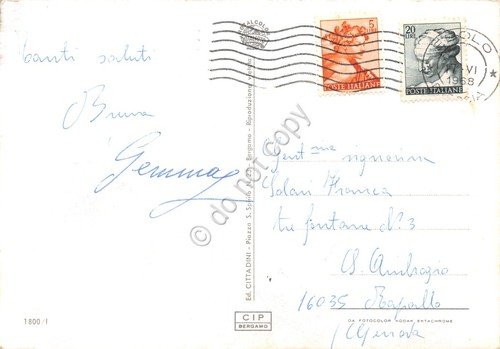 tanti saluti
Bruna
Gemma
5
LIRE
POSTE ITALIANE
20
LIRE
POSTE ITALIANE
VI
1968
Gent.me signorina
Solari Franca
tre fontane n° 3
S. Ambrogio
16035 Rapallo
(Genova
Ed. CITTADINI - Piazza S. Bergamo - Riproduzione
1800/I
CIP
BERGAMO
DA FOTOCOLOR KODAK EKTACHROME
do not copy